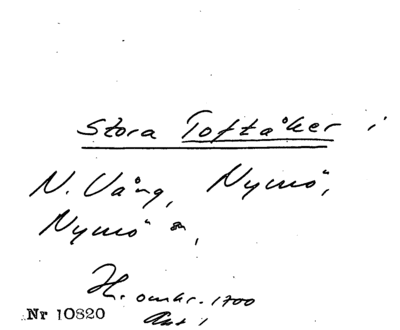 Stora Toftåker i
N. Vång, Nymö,
Nymö sn,
H. omkr. 1700
Nr 10820